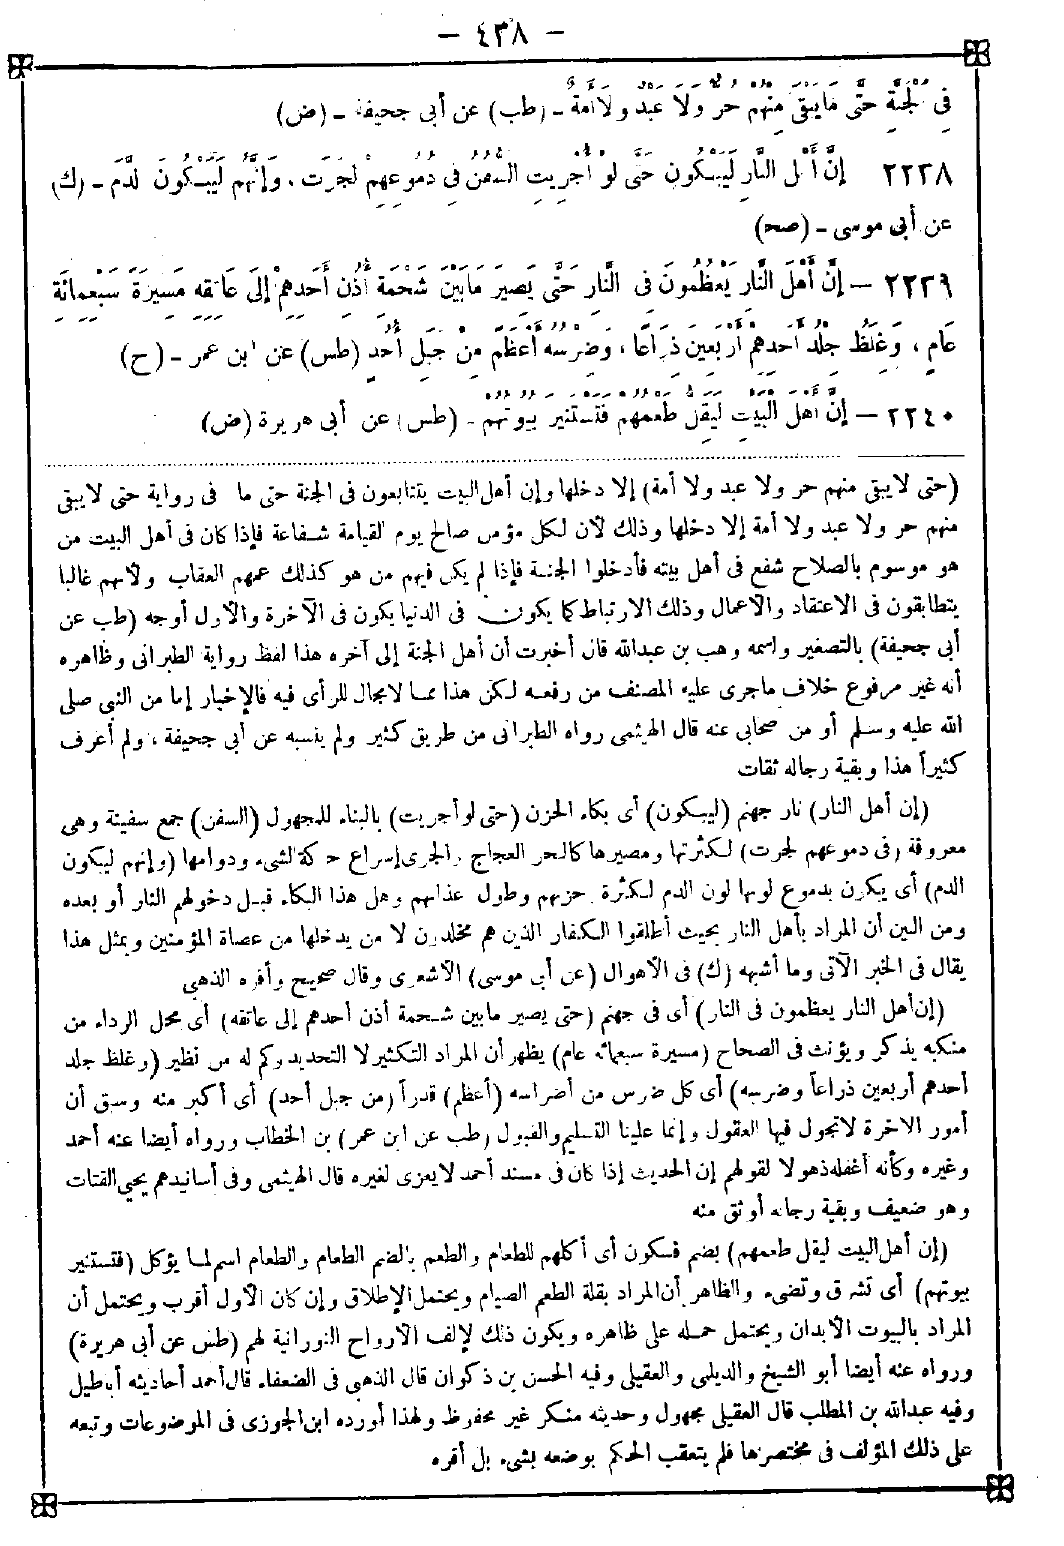 - ٤٣٨ -
فِى الْجَنَّةِ حَتَّى مَا يَبْقَى مِنْهُمْ حُرٌّ وَلَا عَبْدٌ وَلَا أَمَةٌ - (طب) عن أبى جحيفة - (ض)
٢٢٣٨ إِنَّ أَهْلَ النَّارِ لَيَبْكُونَ حَتَّى لَوْ أُجْرِيَتِ السُّفُنُ فِى دُمُوعِهِمْ لَجَرَتْ، وَإِنَّهُمْ لَيَبْكُونَ الدَّمَ - (ك)
عن أبى موسى - (صح)
٢٢٣٩ - إِنَّ أَهْلَ النَّارِ يَعْظُمُونَ فِى النَّارِ حَتَّى يَصِيرَ مَابَيْنَ شَحْمَةِ أُذُنِ أَحَدِهِمْ إِلَى عَاتِقِهِ مَسِيرَةَ سَبْعِمِائَةِ
عَامٍ، وَغِلَظُ جِلْدِ أَحَدِهِمْ أَرْبَعِينَ ذِرَاعًا، وَضِرْسُهُ أَعْظَمُ مِنْ جَبَلِ أُحُدٍ (طس) عن ابن عمر - (ح)
٢٢٤٠ - إِنَّ أَهْلَ الْبَيْتِ لَيَقِلُّ طُعْمُهُمْ فَتَسْتَنِيرُ بُيُوتُهُمْ - (طس) عن أبى هريرة (ض)
(حتى لايبقى منهم حر ولا عبد ولا أمة) إلا دخلها وإن أهل البيت يتتابعون فى الجنة حتى ما فى رواية حتى لايبقى
منهم حر ولا عبد ولا أمة إلا دخلها وذلك لأن لكل مؤمن صالح يوم القيامة شفاعة فإذا كان فى أهل البيت من
هو موسوم بالصلاح شفع فى أهل بيته فأدخلوا الجنة فإذا لم يكن فيهم من هو كذلك عمهم العقاب ولأنهم غالبا
يتطابقون فى الاعتقاد والأعمال وذلك الارتباط كما يكون فى الدنيا يكون فى الآخرة والأول أوجه (طب عن
أبى جحيفة) بالتصغير واسمه وهب بن عبدالله قال أخبرت أن أهل الجنة إلى آخره هذا لفظ رواية الطبرانى وظاهره
أنه غير مرفوع خلاف ماجرى عليه المصنف من رفعه لكن هذا مما لامجال للرأى فيه فالإخبار إما من النبى صلى
الله عليه وسلم أو من صحابى عنه قال الهيثمى رواه الطبرانى من طريق كثير ولم ينسبه عن أبى جحيفة، ولم أعرف
كثيراً هذا وبقية رجاله ثقات
(إن أهل النار) نار جهنم (ليبكون) أى بكاء الحزن (حتى لو أجريت) بالبناء للمجهول (السفن) جمع سفينة وهى
معروفة (فى دموعهم لجرت) لكثرتها ومصيرها كالبحر العجاج والجرى إسراع حركة الشىء ودوامها (وإنهم ليبكون
الدم) أى يبكون بدموع لونها لون الدم لكثرة حزنهم وطول عذابهم وهل هذا البكاء قبل دخولهم النار أو بعده
ومن البين أن المراد بأهل النار بحيث أطلقوا الكفار الذين هم مخلدون لا من يدخلها من عصاة المؤمنين وبمثل هذا
يقال فى الخبر الآتى وما أشبهه (ك) فى الأهوال (عن أبى موسى) الأشعرى وقال صحيح وأقره الذهبى
(إن أهل النار يعظمون فى النار) أى فى جهنم (حتى يصير مابين شحمة أذن أحدهم إلى عاتقه) أى محل الرداء من
منكبه يذكر ويؤنث فى الصحاح (مسيرة سبعمائة عام) يظهر أن المراد التكثير لا التحديد وكم له من نظير (وغلظ جلد
أحدهم أربعين ذراعاً وضرسه) أى كل ضرس من أضراسه (أعظم) قدراً (من جبل أحد) أى أكبر منه وسبق أن
أمور الآخرة لاتجول فيها العقول وإنما علينا التسليم والقبول (طب عن ابن عمر) بن الخطاب ورواه أيضا عنه أحمد
وغيره وكأنه أغفله ذهولا لقولهم إن الحديث إذا كان فى مسند أحمد لايعزى لغيره قال الهيثمى وفى أسانيدهم يحيى القتات
وهو ضعيف وبقية رجاله أوثق منه
(إن أهل البيت ليقل طعمهم) بضم فسكون أى أكلهم للطعام والطعم بالضم الطعام والطعام اسم لما يؤكل (فتستنير
بيوتهم) أى تشرق وتضىء والظاهر أن المراد بقلة الطعم الصيام ويحتمل الإطلاق وإن كان الأول أقرب ويحتمل أن
المراد بالبيوت الأبدان ويحتمل حمله على ظاهره ويكون ذلك لإلف الأرواح النورانية لهم (طس عن أبى هريرة)
ورواه عنه أيضا أبو الشيخ والديلمى والعقيلى وفيه الحسن بن ذكوان قال الذهبى فى الضعفاء قال أحمد أحاديثه أباطيل
وفيه عبدالله بن المطلب قال العقيلى مجهول وحديثه منكر غير محفوظ ولهذا أورده ابن الجوزى فى الموضوعات وتبعه
على ذلك المؤلف فى مختصرها فلم يتعقب الحكم بوضعه بشىء بل أقره